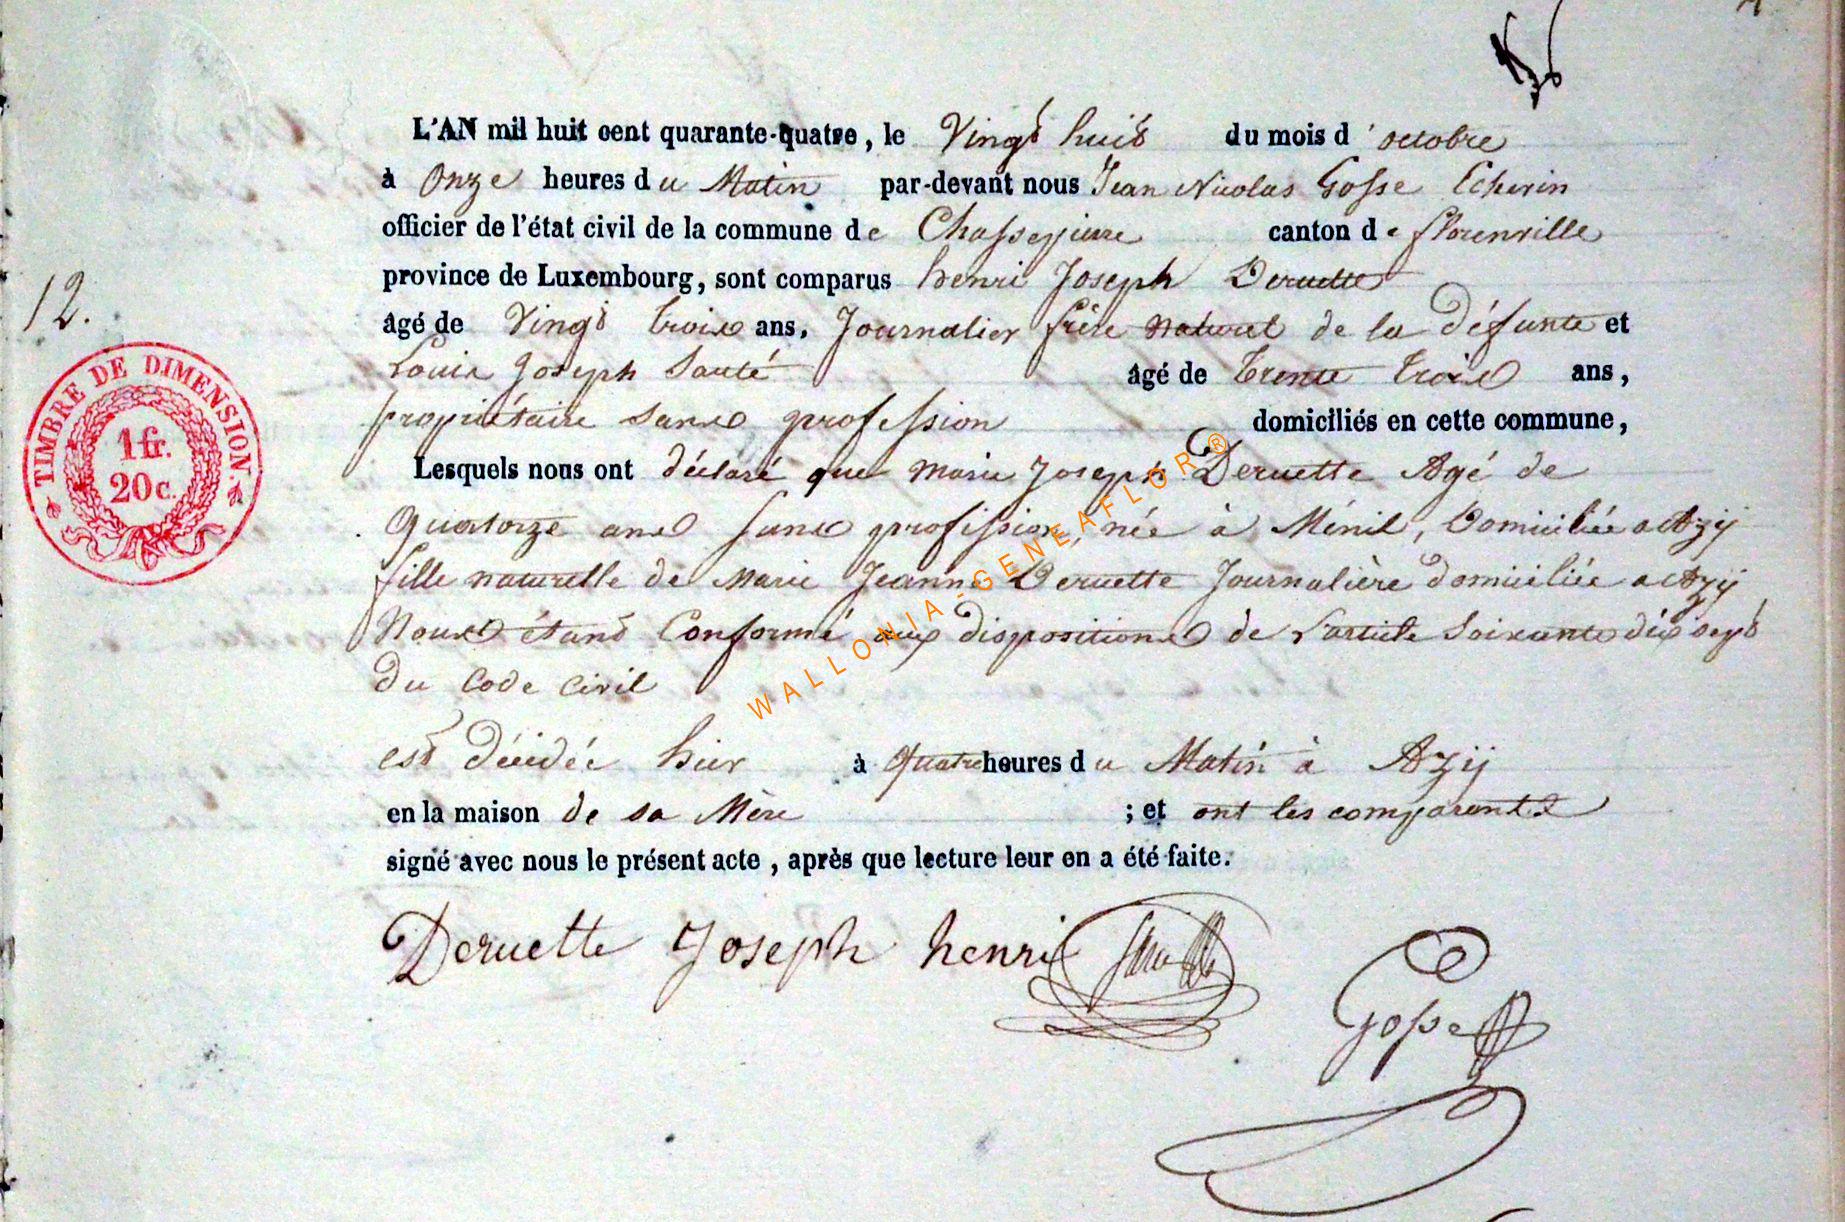 L'AN mil huit cent quarante-quatre, le Vingt huit du mois d'octobre
à Onze heures du Matin par-devant nous Jean Nicolas Gosse Echevin
officier de l'état civil de la commune de Chassepierre canton de florenville
province de Luxembourg, sont comparus henri Joseph Deruette
12.
âgé de Vingt trois ans, Journalier frère naturel de la défunte et
Louis Joseph Sauté âgé de trente trois ans,
propriétaire sans profession domiciliés en cette commune,
Lesquels nous ont déclaré que Marie Joseph Deruette Agé de
Quatorze ans sans profession, née à Ménil, Domiciliée a Azy
fille naturelle de Marie Jeanne Deruette Journalière domiciliée a Azy
Nous étant Conformé aux dispositions de l'article Soixante dix sept
du Code Civil
est décédée hier à quatre heures du Matin à Azy
en la maison de sa Mère ; et ont les comparants
signé avec nous le présent acte, après que lecture leur en a été faite.
Deruette Joseph henri
Gosse
TIMBRE DE DIMENSION.
1 fr.
20 c.
WALLONIA-GENEAFLOR®